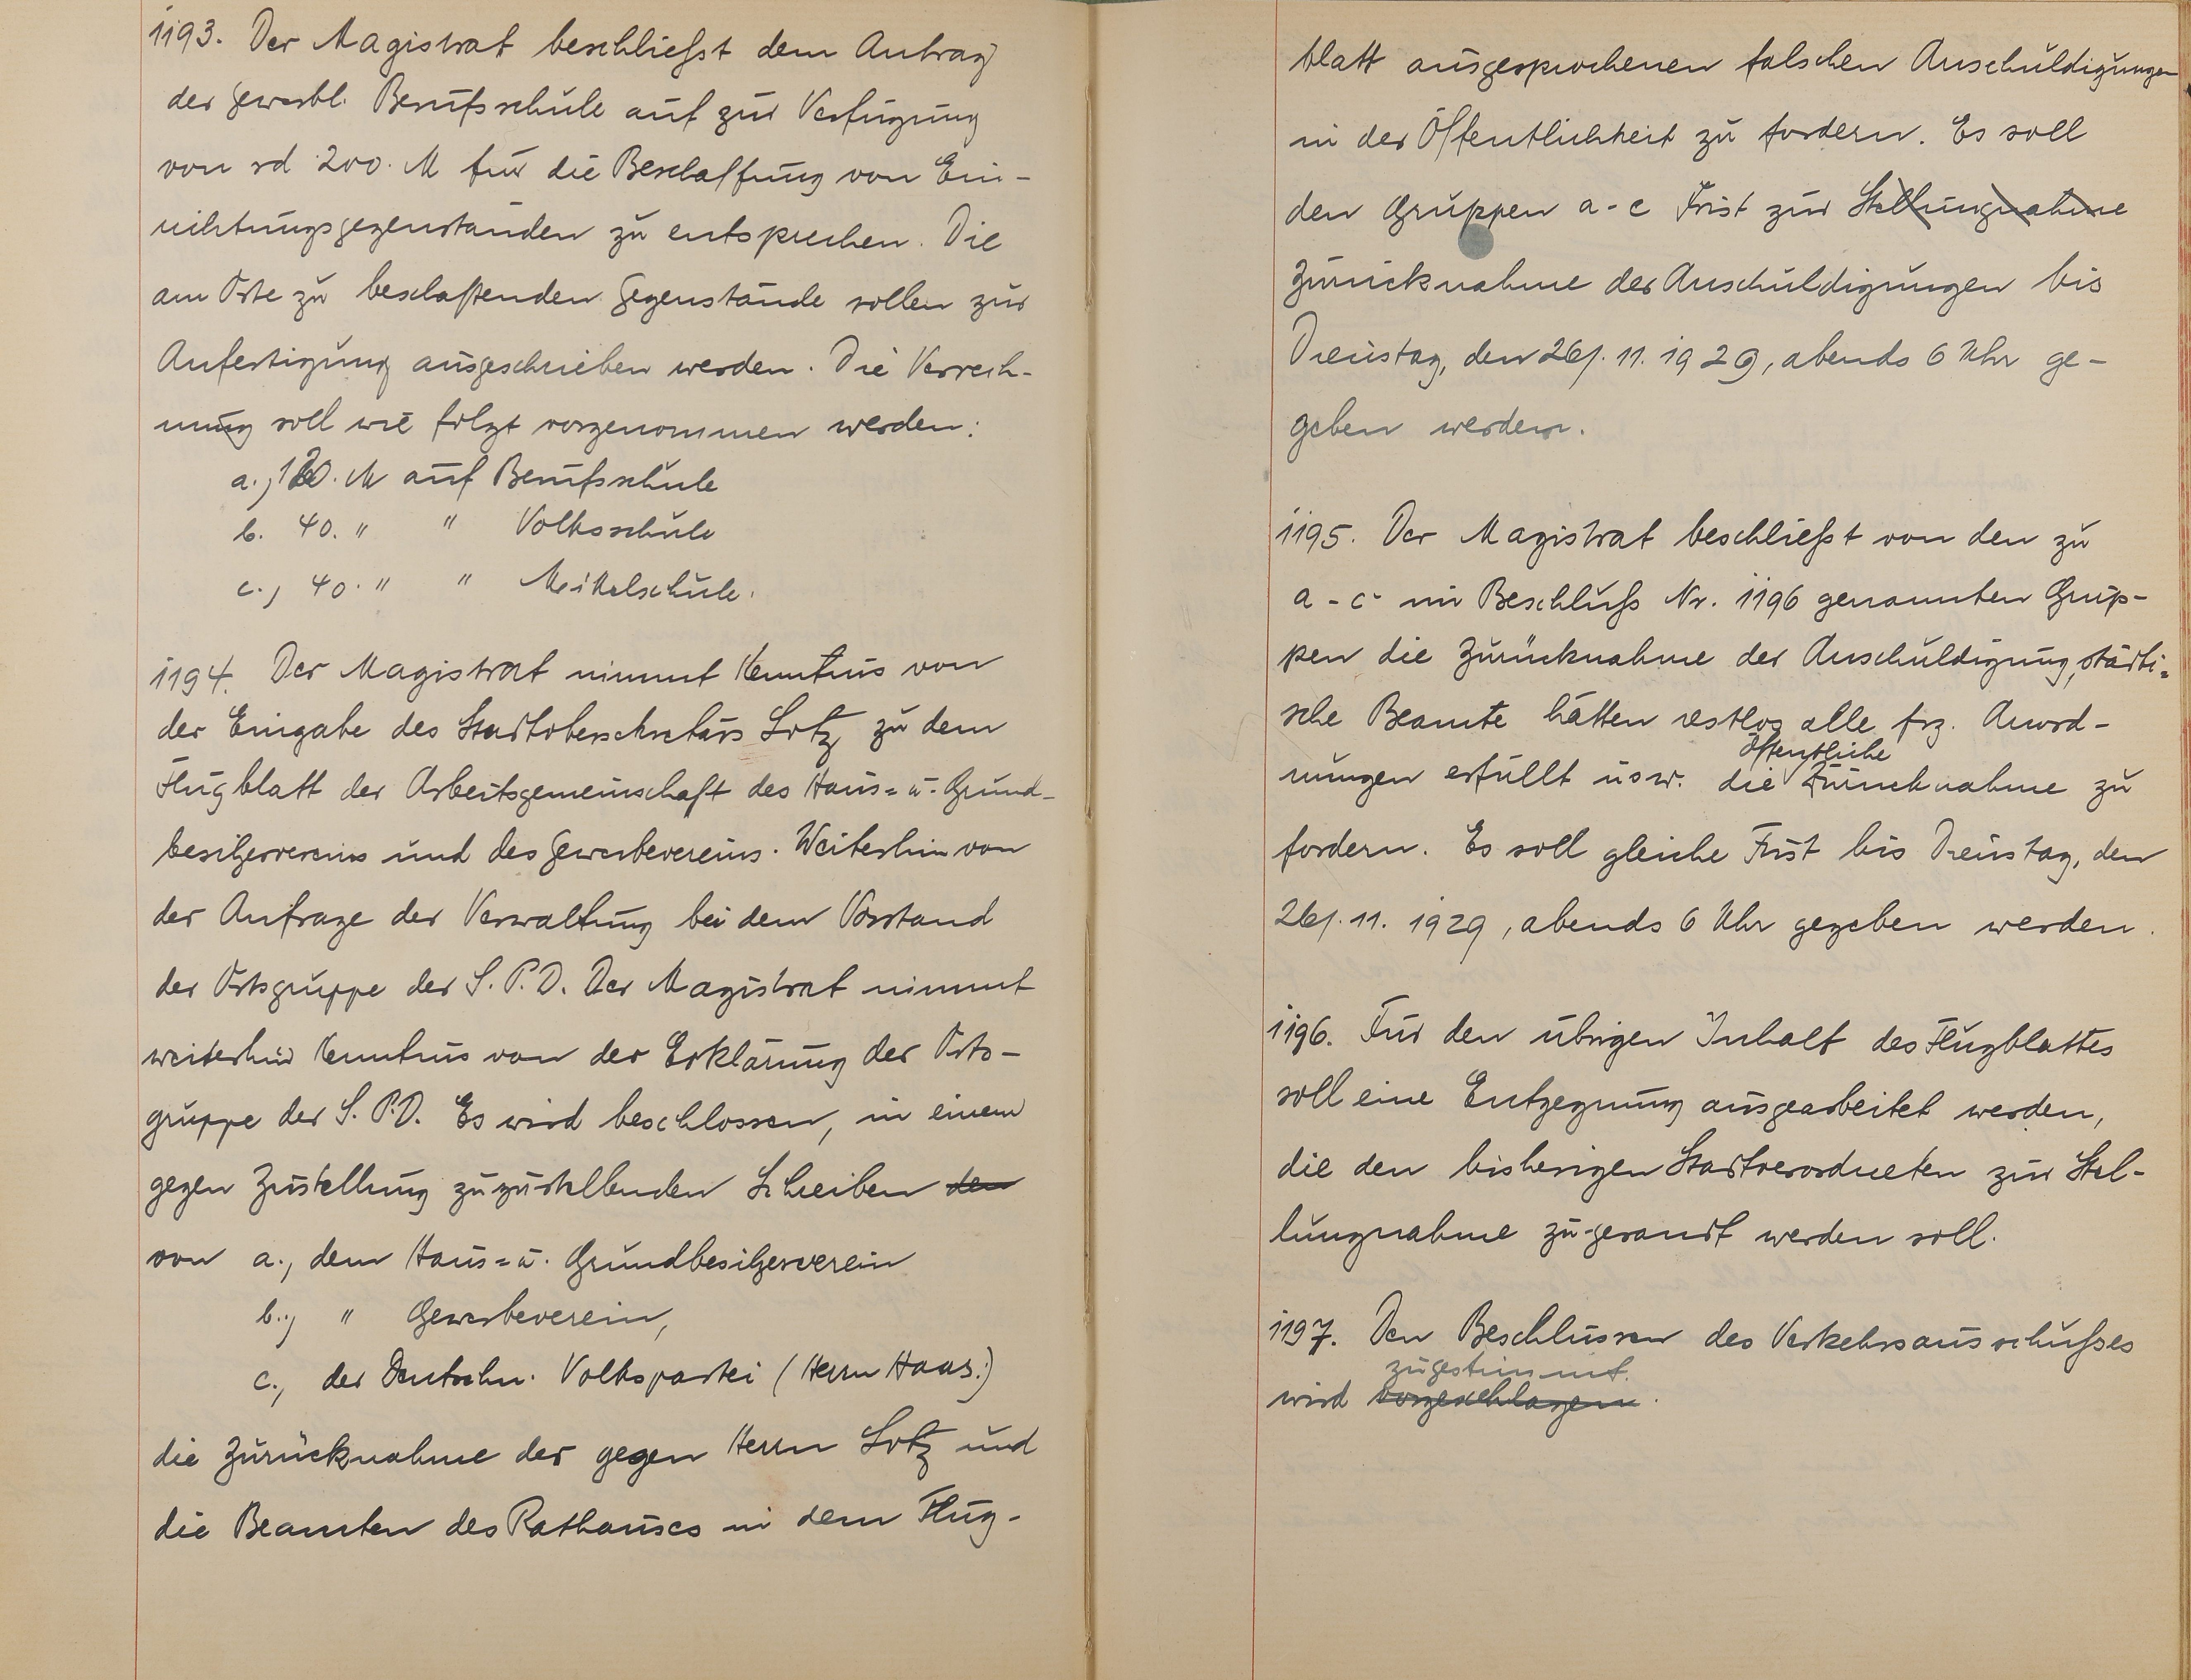 1193. Der Magistrat beschließt dem Antrag
der gewerbl. Berufsschule auf zur Verfügung
von rd 200. M für die Beschaffung von Ein-
richtungsgegenständen zu entsprechen. Die
am Orte zu beschaffenden Gegenstände sollen zur
Anfertigung ausgeschrieben werden. Die Verrech-
nung soll wie folgt vorgenommen werden:
a., 120. M auf Berufsschule
b. 40. " " Volksschule
c., 40. " " Mittelschule.
1194. Der Magistrat nimmt Kenntnis von
der Eingabe des Stadtobersekretärs Lotz zu dem
Flugblatt der Arbeitsgemeinschaft des Haus= u. Grund-
besitzervereins und des Gewerbevereins. Weiterhin von
der Anfrage der Verwaltung bei dem Vorstand
der Ortsgruppe der S.P.D. Der Magistrat nimmt
weiterhin Kenntnis von der Erklärung der Orts-
gruppe der S.P.D. Es wird beschlossen, in einem
gegen Zustellung zuzustellenden Schreiben den
von a., dem Haus= u. Grundbesitzerverein
b., " Gewerbeverein,
c., der Deutschn. Volkspartei (Herrn Haas.)
die Zurücknahme der gegen Herrn Lotz und
die Beamten des Rathauses in dem Flug-
blatt ausgesprochenen falschen Anschuldigungen
in der Öffentlichkeit zu fordern. Es soll
den Gruppen a-c Frist zur Stellungnahme
Zurücknahme der Anschuldigungen bis
Dienstag, den 26. 11. 1929, abends 6 Uhr ge-
geben werden.
1195. Der Magistrat beschließt von den zu
a - c im Beschluß Nr. 1196 genannten Grup-
pen die Zurücknahme der Anschuldigung, städti=
sche Beamte hätten restlos alle frz. Anord-
öffentliche
nungen erfüllt usw. die Zurücknahme zu
fordern. Es soll gleiche Frist bis Dienstag, den
26. 11. 1929, abends 6 Uhr gegeben werden.
1196. Für den übrigen Inhalt des Flugblattes
soll eine Entgegnung ausgearbeitet werden,
die den bisherigen Stadtverordneten zur Stel-
lungnahme zu-gesandt werden soll.
1197. Den Beschlüssen des Verkehrsausschußes
zugestimmt.
wird vorgeschlagen.